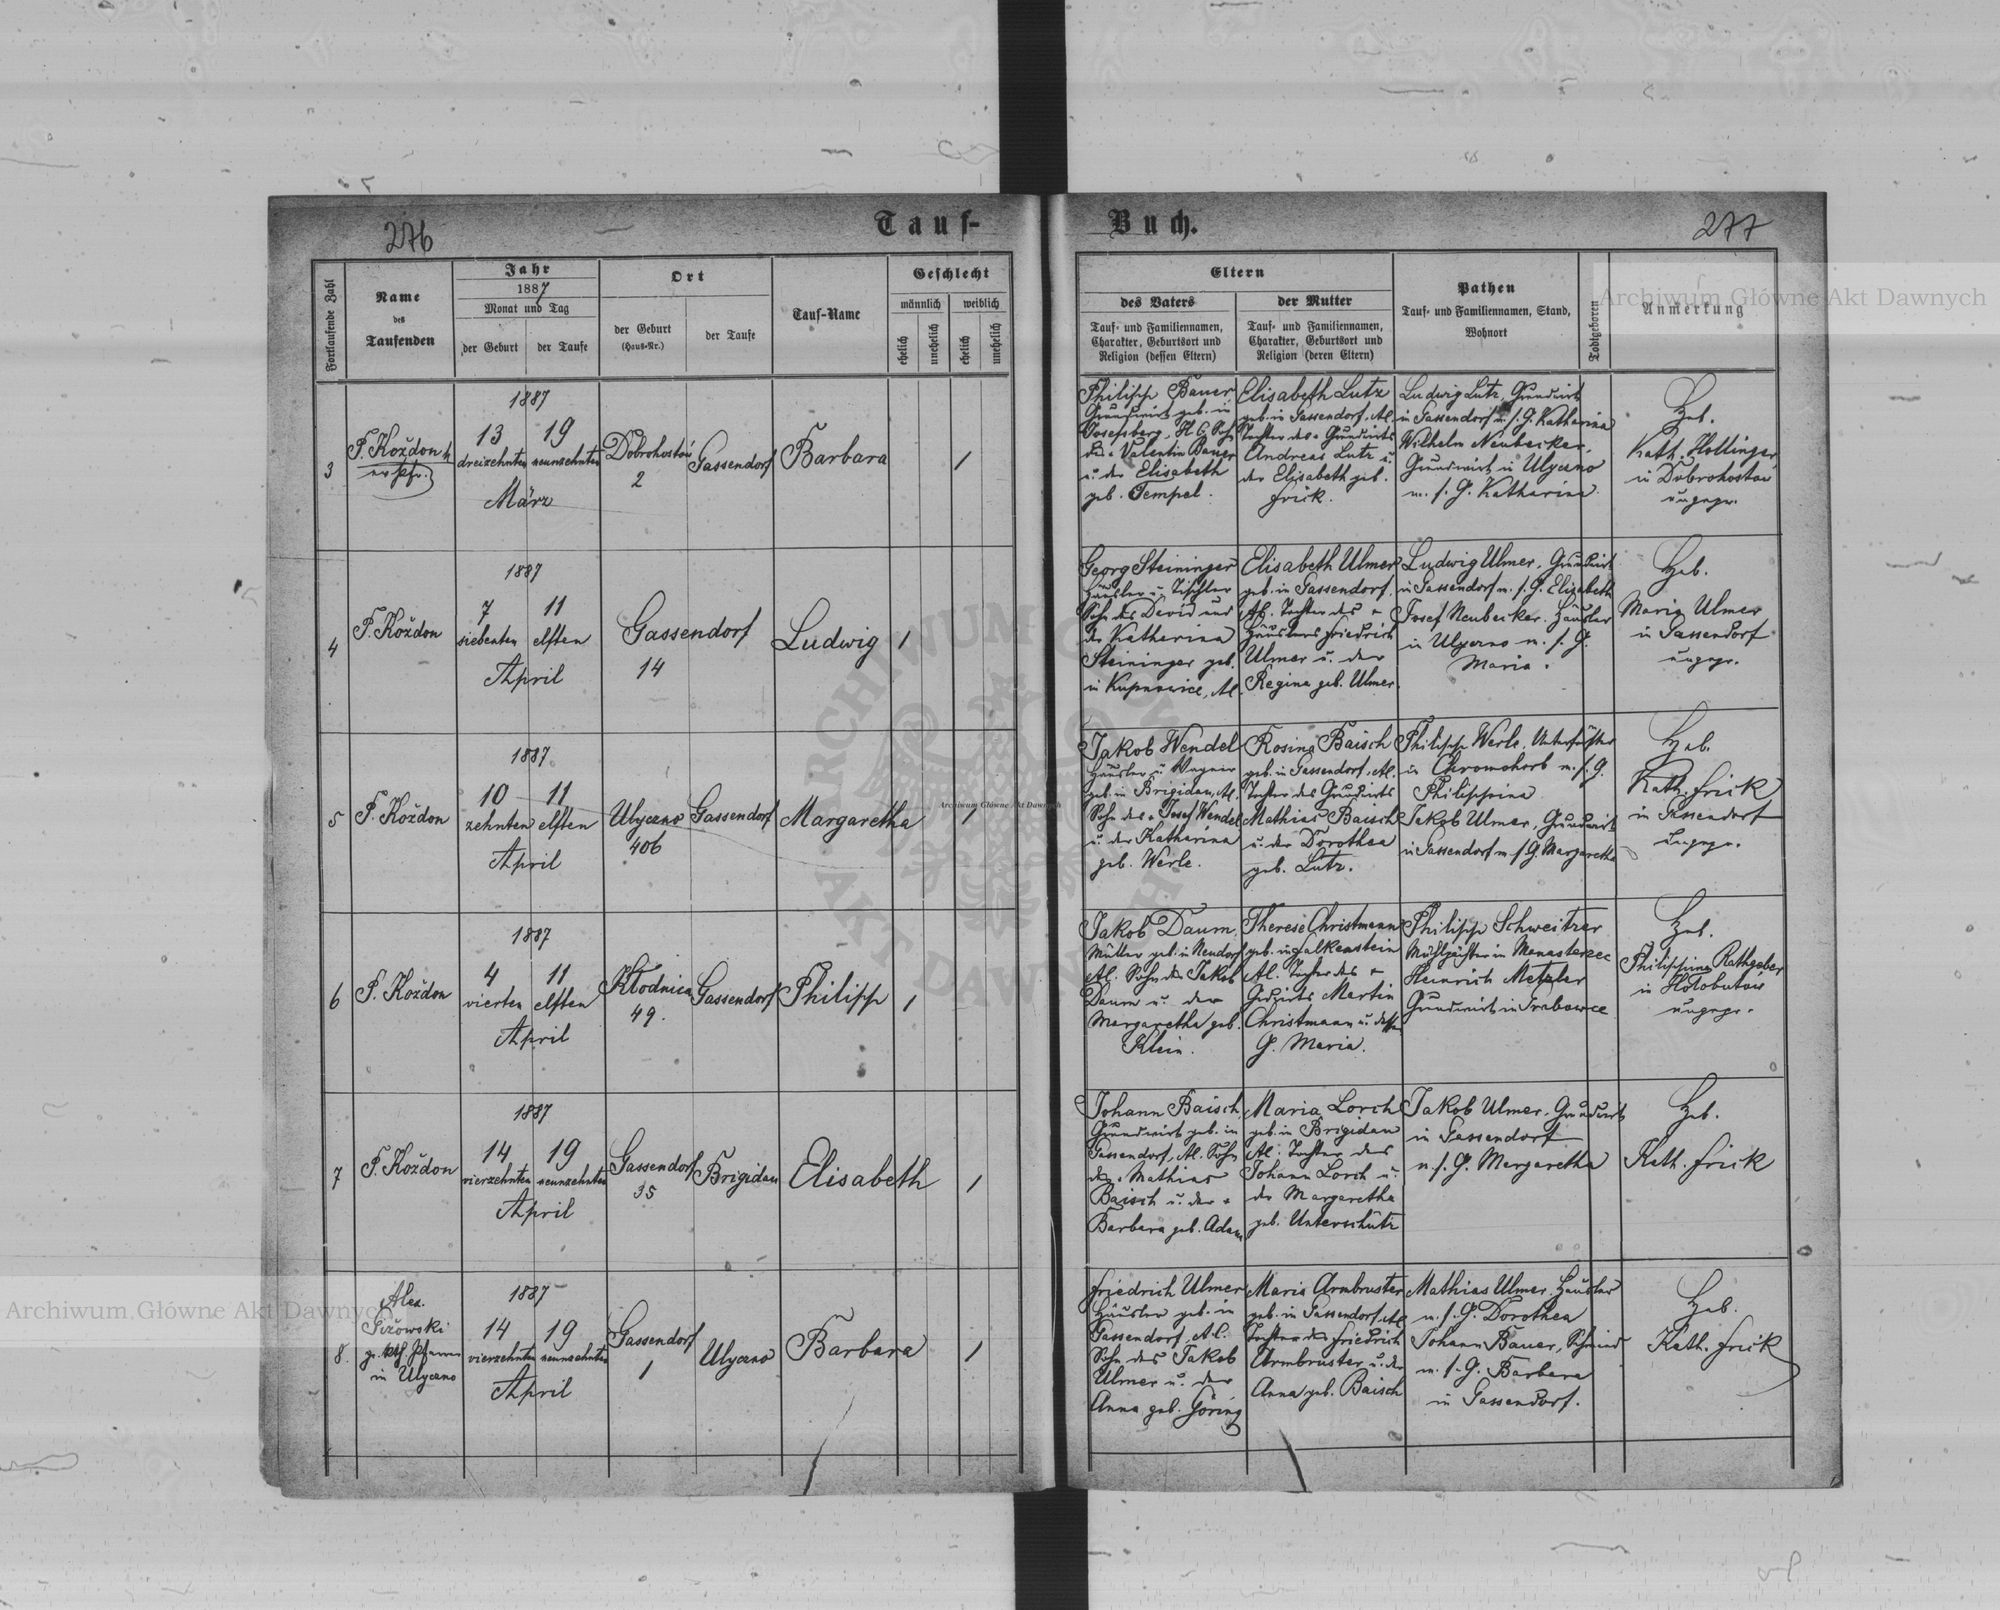 276
Tauf-
Buch.
277
Fortlaufende Zahl
Name
des
Taufenden
Jahr
1887
Monat und Tag
der Geburt
der Taufe
Ort
der Geburt
(Haus-Nr.)
der Taufe
Tauf-Name
Geschlecht
männlich
weiblich
ehelich
unehelich
ehelich
unehelich
Eltern
des Vaters
Tauf- und Familiennamen,
Charakter, Geburtsort und
Religion (dessen Eltern)
der Mutter
Tauf- und Familiennamen,
Charakter, Geburtsort und
Religion (deren Eltern)
Pathen
Tauf- und Familiennamen, Stand,
Wohnort
Todtgeboren
Anmerkung
3
F. Koždon
1887
13
dreizehnten
19
neunzehnten
März
Dobrohostów
2
Gassendorf
Barbara
1
Philipp Bauer
Grundwirt geb. in
Josefsberg, H. C. Sohn
des + Valentin Bauer
u. der Elisabeth
geb. Tempel.
Elisabeth Lutz
geb. in Gassendorf, Al.
Tochter des + Grundwirts
Andreas Lutz u.
der Elisabeth geb.
Frick.
Ludwig Lutz, Grundwirt
in Gassendorf m. s. G. Katharina
Wilhelm Neubecker,
Grundwirt in Ulyczno
m. s. G. Katharina.
Heb.
Kath. Hollinger
in Dobrohostow
ungepr.
4
F. Koždon
1887
7
siebenten
11
elften
April
Gassendorf
14
Ludwig
1
Georg Steininger
Häusler u. Tischler
Sohn des David und
der Katharina
Steininger geb.
in Kupnowice, Al.
Elisabeth Ulmer
geb. in Gassendorf,
Al. Tochter des +
Häuslers Friedrich
Ulmer u. der
Regina geb. Ulmer.
Ludwig Ulmer, Grundwirt
in Gassendorf m. s. G. Elisabeth
Josef Neubecker, Häusler
in Ulyczno m. s. G.
Maria.
Heb.
Maria Ulmer
in Gassendorf
ungepr.
5
F. Koždon
1887
10
zehnten
11
elften
April
Ulyczno
406
Gassendorf
Margaretha
1
Jakob Wendel
Häusler u. Wagner
geb. in Brigidau, Al.
Sohn des + Josef Wendel
u. der Katharina
geb. Werle.
Rosina Baisch
geb. in Gassendorf, Al.
Tochter des Grundwirts
Mathias Baisch
u. der Dorothea
geb. Lutz.
Philipp Werle, Unterförster
in Chromohorb m. s. G.
Philippina
Jakob Ulmer, Grundwirt
in Gassendorf m. s. G. Margaretha
Heb.
Kath. Frick
in Gassendorf
ungepr.
6
F. Koždon
1887
4
vierten
11
elften
April
Kłodnica
49.
Gassendorf
Philipp
1
Jakob Daum,
Müller geb. in Neudorf
Al. Sohn des Jakob
Daum u. der
Margaretha geb.
Klein.
Therese Christmann
geb. in Falkenstein
Al. Tochter des +
Martin
Christmann u. dessen
G. Maria.
Philipp Schweitzer
Mühlpächter in Monasterzec
Heinrich Metzler
Grundwirt in Grabowce
Heb.
Philippina Rathgeber
in Hołobutow
ungepr.
7
F. Koždon
1887
14
vierzehnten
19
neunzehnten
April
Gassendorf
35
Brigidau
Elisabeth
1
Johann Baisch,
Grundwirt geb. in
Gassendorf, Al. Sohn
des + Mathias
Baisch u. der +
Barbara geb. Adam
Maria Lorch
geb. in Brigidau
Al. Tochter des
Johann Lorch u.
der Margaretha
geb. Unterschütz
Jakob Ulmer, Grundwirt
in Gassendorf
m. s. G. Margaretha
Heb.
Kath. Frick
8.
Alex.
Gižowski
gr. kth. Pfarrer
in Ulyczno
1887
14
vierzehnten
19
neunzehnten
April
Gassendorf
1
Ulyczno
Barbara
1
Friedrich Ulmer
Häusler geb. in
Gassendorf, A. C.
Sohn des Jakob
Ulmer u. der
Anna geb. Göring
Maria Armbruster
geb. in Gassendorf, Al.
Tochter des Friedrich
Armbruster u. der
Anna geb. Baisch
Mathias Ulmer, Häusler
m. s. G. Dorothea
Johann Bauer, Schmied
m. s. G. Barbara
in Gassendorf.
Heb.
Kath. Frick
Archiwum Główne Akt Dawnych
Archiwum Główne Akt Dawnych
Archiwum Główne Akt Dawnych